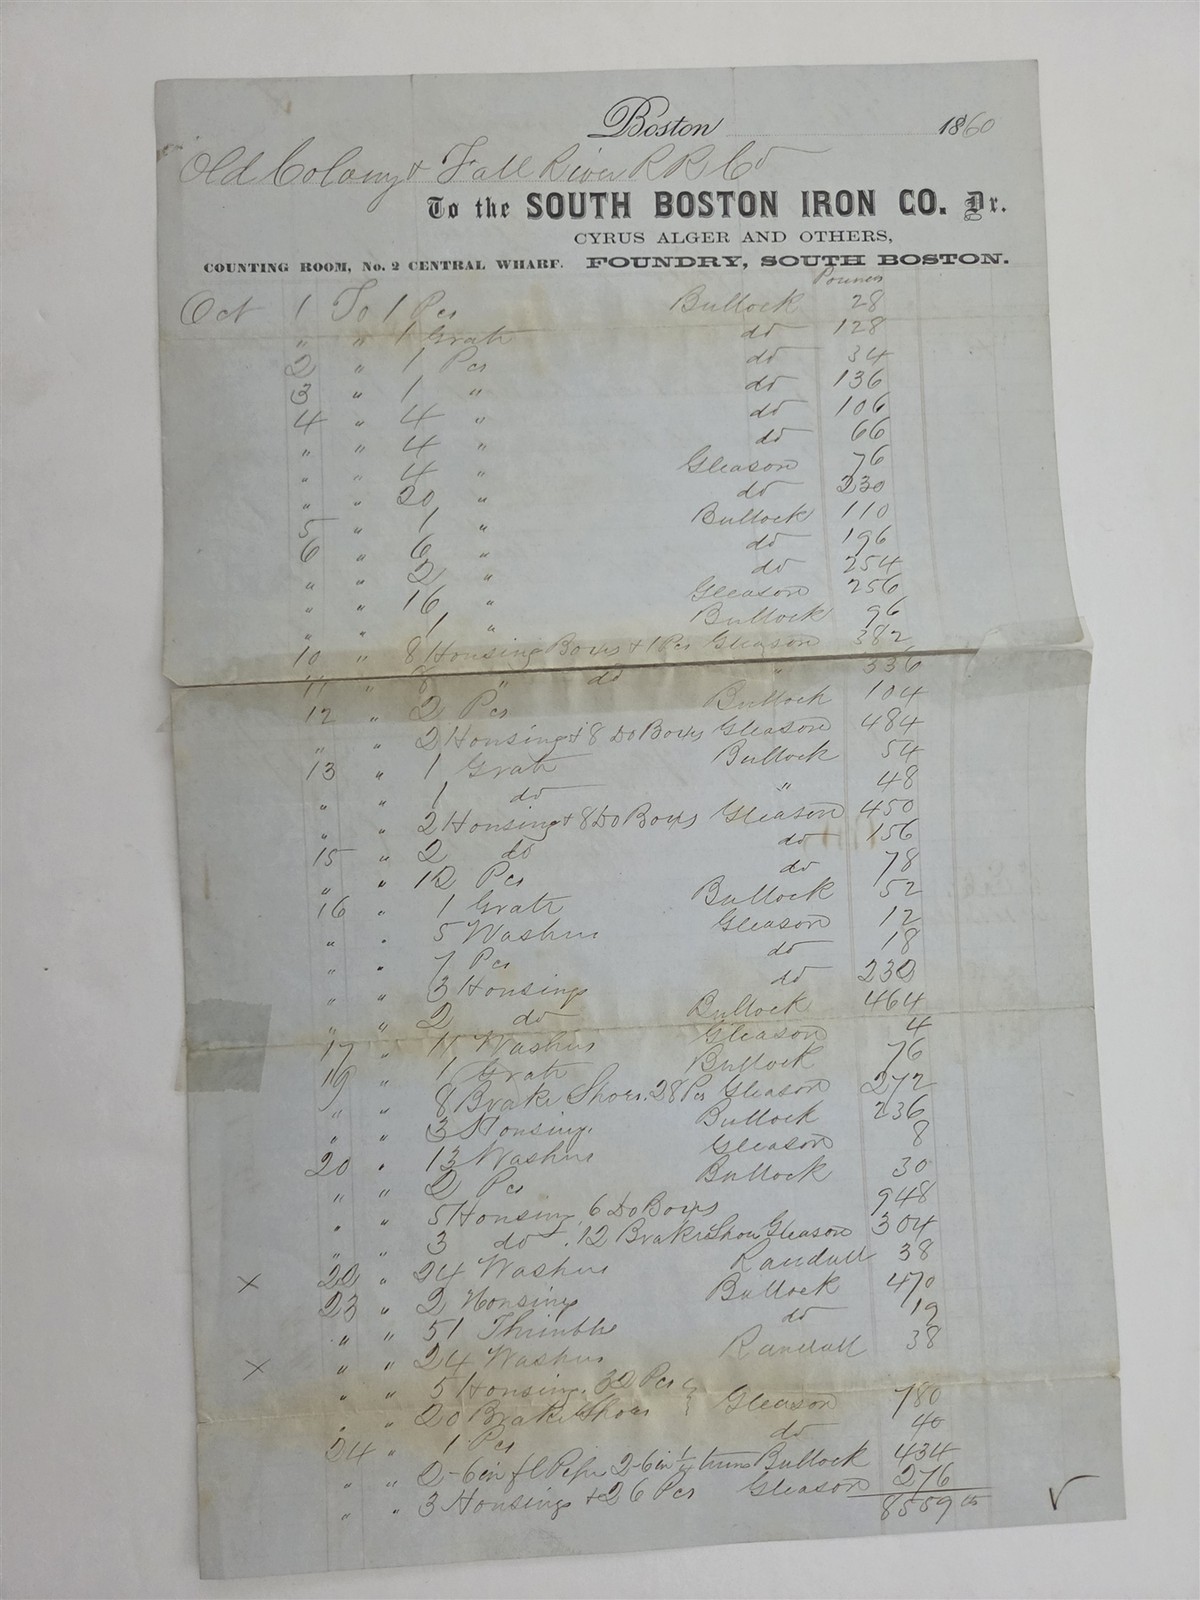 Boston 1860
Old Colony & Fall River R R Co
To the SOUTH BOSTON IRON CO. Dr.
CYRUS ALGER AND OTHERS,
COUNTING ROOM, No. 2 CENTRAL WHARF. FOUNDRY, SOUTH BOSTON.
Pounds
Oct 1 To 1 Pcs Bullock 28
" " 1 Grate do 128
2 " 1 Pcs do 34
3 " 1 " do 136
4 " 4 " do 106
" " 4 " do 66
" " 4 " Gleason 76
" " 20 " do 230
5 " 1 " Bullock 110
6 " 6 " do 196
" " 2 " do 254
" " 16 " Gleason 256
" " 1 " Bullock 96
10 " 8 Housing Boxes & 1 Pcs Gleason 382
11 " 8 " do " 336
12 " 2 Pcs Bullock 104
" " 2 Housing & 8 Do Boxes Gleason 484
13 " 1 Grate Bullock 54
" " 1 do " 48
" " 2 Housing & 8 Do Boxes Gleason 450
15 " 2 do do 156
" " 12 Pcs do 78
16 " 1 Grate Bullock 52
" " 5 Washers Gleason 12
" " 7 Pcs do 18
" " 3 Housings do 230
" " 2 do Bullock 464
17 " 11 Washers Gleason 4
19 " 1 Grate Bullock 76
" " 8 Brake Shoes. 28 Pcs Gleason 272
" " 3 Housing. Bullock 236
20 " 13 Washers Gleason 8
" " 2 Pcs Bullock 30
" " 5 Housing, 6 Do Boxes 948
" " 3 do . 12 Brake Shoes Gleason 304
x 22 " 24 Washers Randall 38
23 " 2 Housings Bullock 470
" " 51 Thimble do 19
x " " 24 Washers Randall 38
" " 5 Housing. 32 Pcs }
" " 20 Brake Shoes } Gleason 780
24 " 1 Pcs do 40
" " 2-6 in fl Pipe 2-6 in 1/4 turns Bullock 434
" " 3 Housings & 26 Pcs Gleason 276
8559 lbs ✓